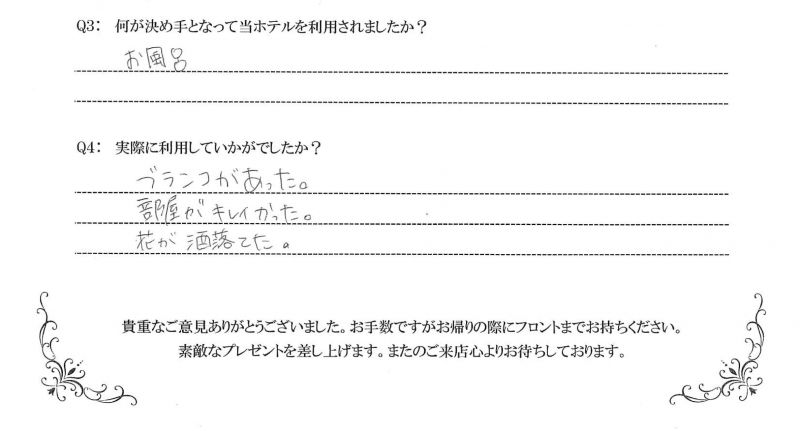 Q3: 何が決め手となって当ホテルを利用されましたか?
お風呂
Q4: 実際に利用していかがでしたか?
ブランコがあった。
部屋がキレイかった。
花が洒落てた。
貴重なご意見ありがとうございました。お手数ですがお帰りの際にフロントまでお持ちください。
素敵なプレゼントを差し上げます。またのご来店心よりお待ちしております。